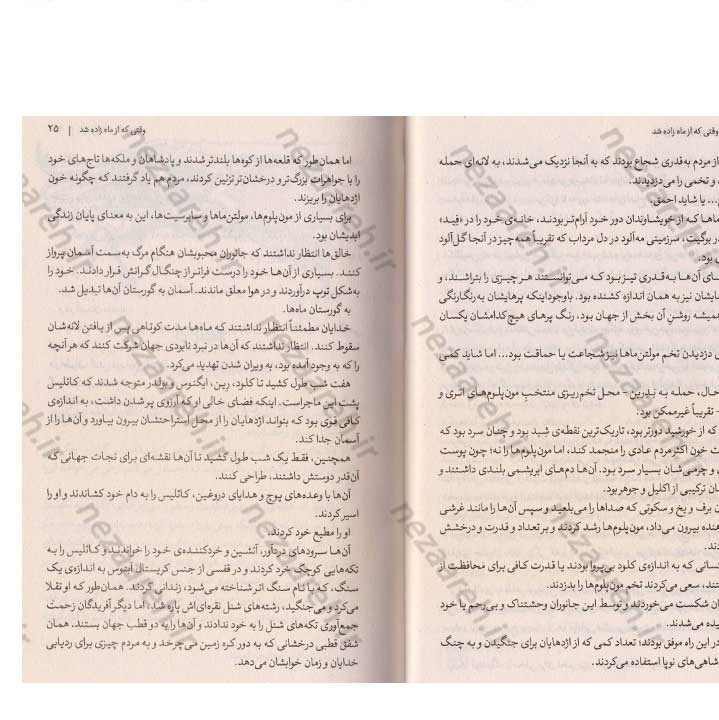 وقتی که از ماه زاده شد
از مردم به‌قدری شجاع بودند که به آنجا نزدیک می‌شدند، به لانه‌ای حمله
و تخمی را می‌دزدیدند.
... یا شاید احمق.
ماها که از خویشاوندان دور خود آرام‌تر بودند، خانه‌ی خود را در «فِید»
در بوگیت، سرزمینی مه‌آلود در دل مرداب که تقریباً همه‌چیز در آنجا گل‌آلود
بود.
ای آن‌ها به‌قدری تیز بود که می‌توانستند هر چیزی را بتراشند، و
ایشان نیز به همان اندازه کشنده بود. باوجوداینکه پرهایشان به رنگارنگی
همیشه روشنِ آن بخش از جهان بود، رنگ پرهای هیچ‌کدامشان یکسان
دزدیدن تخم مولتن‌ماها نیز شجاعت یا حماقت بود... اما شاید کمی
حال، حمله به نِدرین - محل تخم‌ریزی منتخبِ مون‌پلوم‌های اثری و
تقریباً غیرممکن بود.
که از خورشید دورتر بود، تاریک‌ترین نقطه‌ی شِید بود و چنان سرد بود که
خون اکثر مردم عادی را منجمد کند، اما مون‌پلوم‌ها را نه؛ چون پوست
و چرمی‌شان بسیار سرد بود. آن‌ها دم‌های ابریشمی بلندی داشتند و
ترکیبی از اکلیل و جوهر بود.
برف و یخ و سکوتی که صداها را می‌بلعید و سپس آن‌ها را مانند غرشی
بیرون می‌داد، مون‌پلوم‌ها رشد کردند و بر تعداد و قدرت و درخشش
کسانی که به اندازه‌ی کلود بی‌پروا بودند یا قدرت کافی برای محافظت از
سعی می‌کردند تخم مون‌پلوم‌ها را بدزدند.
شکست می‌خوردند و توسط این جانوران وحشتناک و بی‌رحم یا خود
می‌شدند.
در این راه موفق بودند؛ تعداد کمی که از اژدهایان برای جنگیدن و به چنگ
شاهی‌های نوپا استفاده می‌کردند.
وقتی که از ماه زاده شد | ۲۵
اما همان‌طور که قلعه‌ها از کوه‌ها بلندتر شدند و پادشاهان و ملکه‌ها تاج‌های خود
را با جواهرات بزرگ‌تر و درخشان‌تر تزئین کردند، مردم هم یاد گرفتند که چگونه خون
اژدهایان را بریزند.
برای بسیاری از مون‌پلوم‌ها، مولتن‌ماها و سابرسیت‌ها، این به معنای پایان زندگی
ابدیشان بود.
خالق‌ها انتظار نداشتند که جانوران محبوبشان هنگام مرگ به‌سمت آسمان پرواز
کنند. بسیاری از آن‌ها خود را درست فراتر از چنگال گرانش قرار دادند. خود را
به‌شکل توپ درآوردند و در هوا معلق ماندند. آسمان به گورستان آن‌ها تبدیل شد.
به گورستان ماه‌ها.
خدایان مطمئناً انتظار نداشتند که ماه‌ها مدت کوتاهی پس از یافتن لانه‌شان
سقوط کنند. انتظار نداشتند که آن‌ها در نبرد نابودی جهان شرکت کنند که هر آنچه
را که به وجود آمده بود، به ویران شدن تهدید می‌کرد.
هفت شب طول کشید تا کلود، رین، ایگنوس و بولدر متوجه شدند که کائلیس
پشت این ماجراست. اینکه فضای خالی او که آرزوی پر شدن داشت، به اندازه‌ی
کافی قوی بود که بتواند اژدهایان را از محل استراحتشان بیرون بیاورد و آن‌ها را از
آسمان جدا کند.
همچنین، فقط یک شب طول کشید تا آن‌ها نقشه‌ای برای نجات جهانی که
آن‌قدر دوستش داشتند، طراحی کنند.
آن‌ها با وعده‌های پوچ و هدایای دروغین، کائلیس را به دام خود کشاندند و او را
اسیر کردند.
او را مطیع خود کردند.
آن‌ها سرودهای دردآور، آتشین و خردکننده‌ی خود را خواندند و کائلیس را به
تکه‌هایی کوچک خرد کردند و در قفسی از جنس کریستال آبنوس به اندازه‌ی یک
سنگ، که با نام سنگ اثر شناخته می‌شود، زندانی کردند. همان‌طور که او تقلا
می‌کرد و می‌جنگید، رشته‌های شنل نقره‌ای‌اش پاره شد، اما دیگر آفریدگان زحمت
جمع‌آوری تکه‌های شنل را به خود ندادند و آن‌ها را به دو قطب جهان بستند. همان
شفق قطبی درخشانی که به دور کره زمین می‌چرخد و به مردم چیزی برای ردیابی
خدایان و زمان خوابشان می‌دهد.
nezaareh.ir